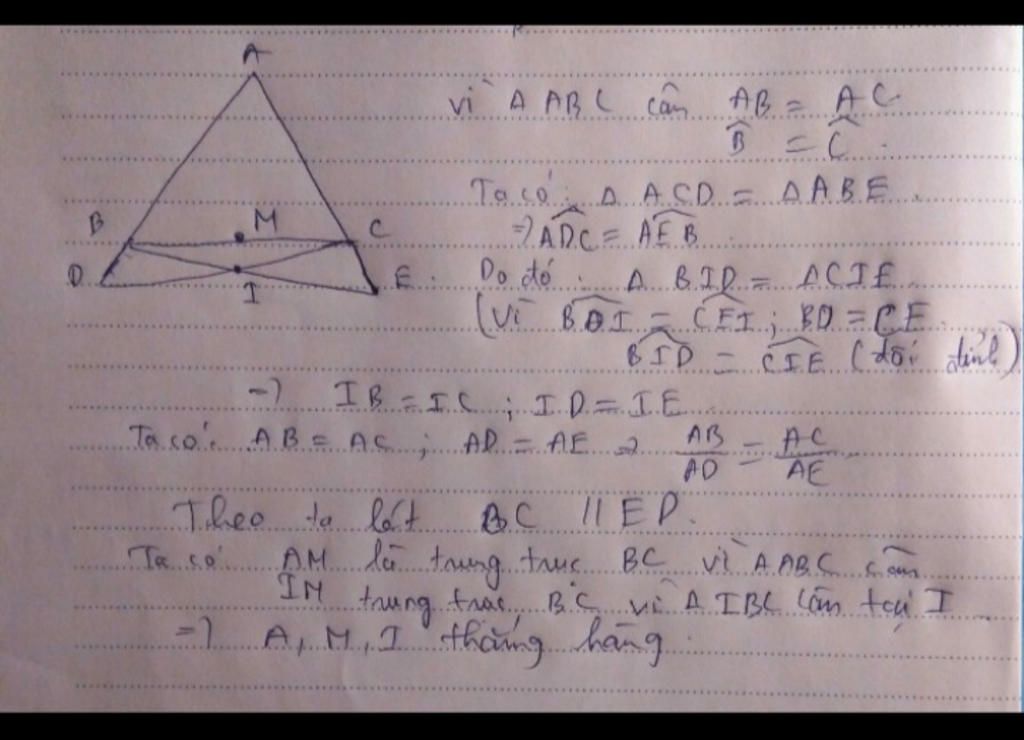 A
B
M
C
D
I
E
vì Δ ABC cân AB = AC
B̂ = Ĉ.
Ta có: Δ ACD = Δ ABE.
=> ADC = AEB.
Do đó: Δ BID = ΔCIE
(Vì BDI = CEI; BD = CE.
BID = CIE (đối đỉnh)
=> IB = IC; ID = IE
Ta có: AB = AC; AD = AE => AB/AD = AC/AE
Theo ta lét BC // ED.
Ta có AM là trung trực BC vì ΔABC cân
IM trung trực BC vì Δ IBC cân tại I
=> A, M, I thẳng hàng.